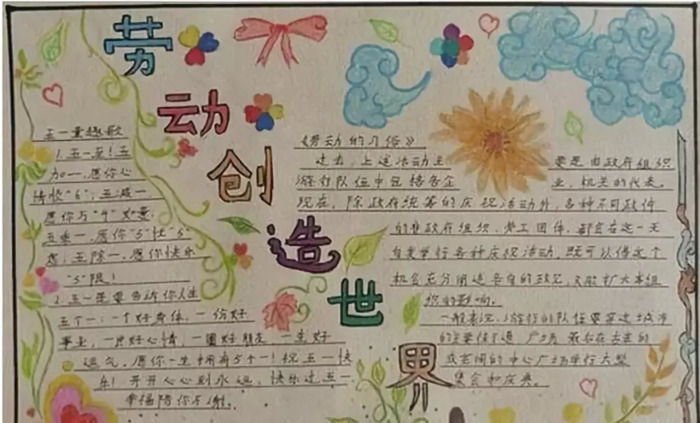 劳动创造世界
五一童趣歌
1.五一莅!五
加一,愿你心
情快"6";五减一
愿你与"4"久意,
五乘一,愿你"5"快"5"
虑;五除一,愿你快乐
"5"限!
2.五一是要告诉你人生
五个一:一个好身体,一份好
事业,一片好心情,一圈好朋友,一生好
运气,愿你一生拥有5个一!祝五一快
乐!开开心心到永远,快乐过五一
幸福陪你左谢。
《劳动的习俗》
过去,上述活动主 要是由政府组织
游行队伍中包括各企 业,机关的代表,
现在,除政府统筹的庆祝活动外,各种不同政体
的非政府组织,劳工团体,都会在这一天
自发举行各种庆祝活动,既可以借这个
机会充分阐述各自的政见,又能扩大本组
织的影响。
一般来说,游行的队伍要穿过城市
的主要街道,广场,最后在主要的
或宏阔的中心广场举行大型
集会和庆典。